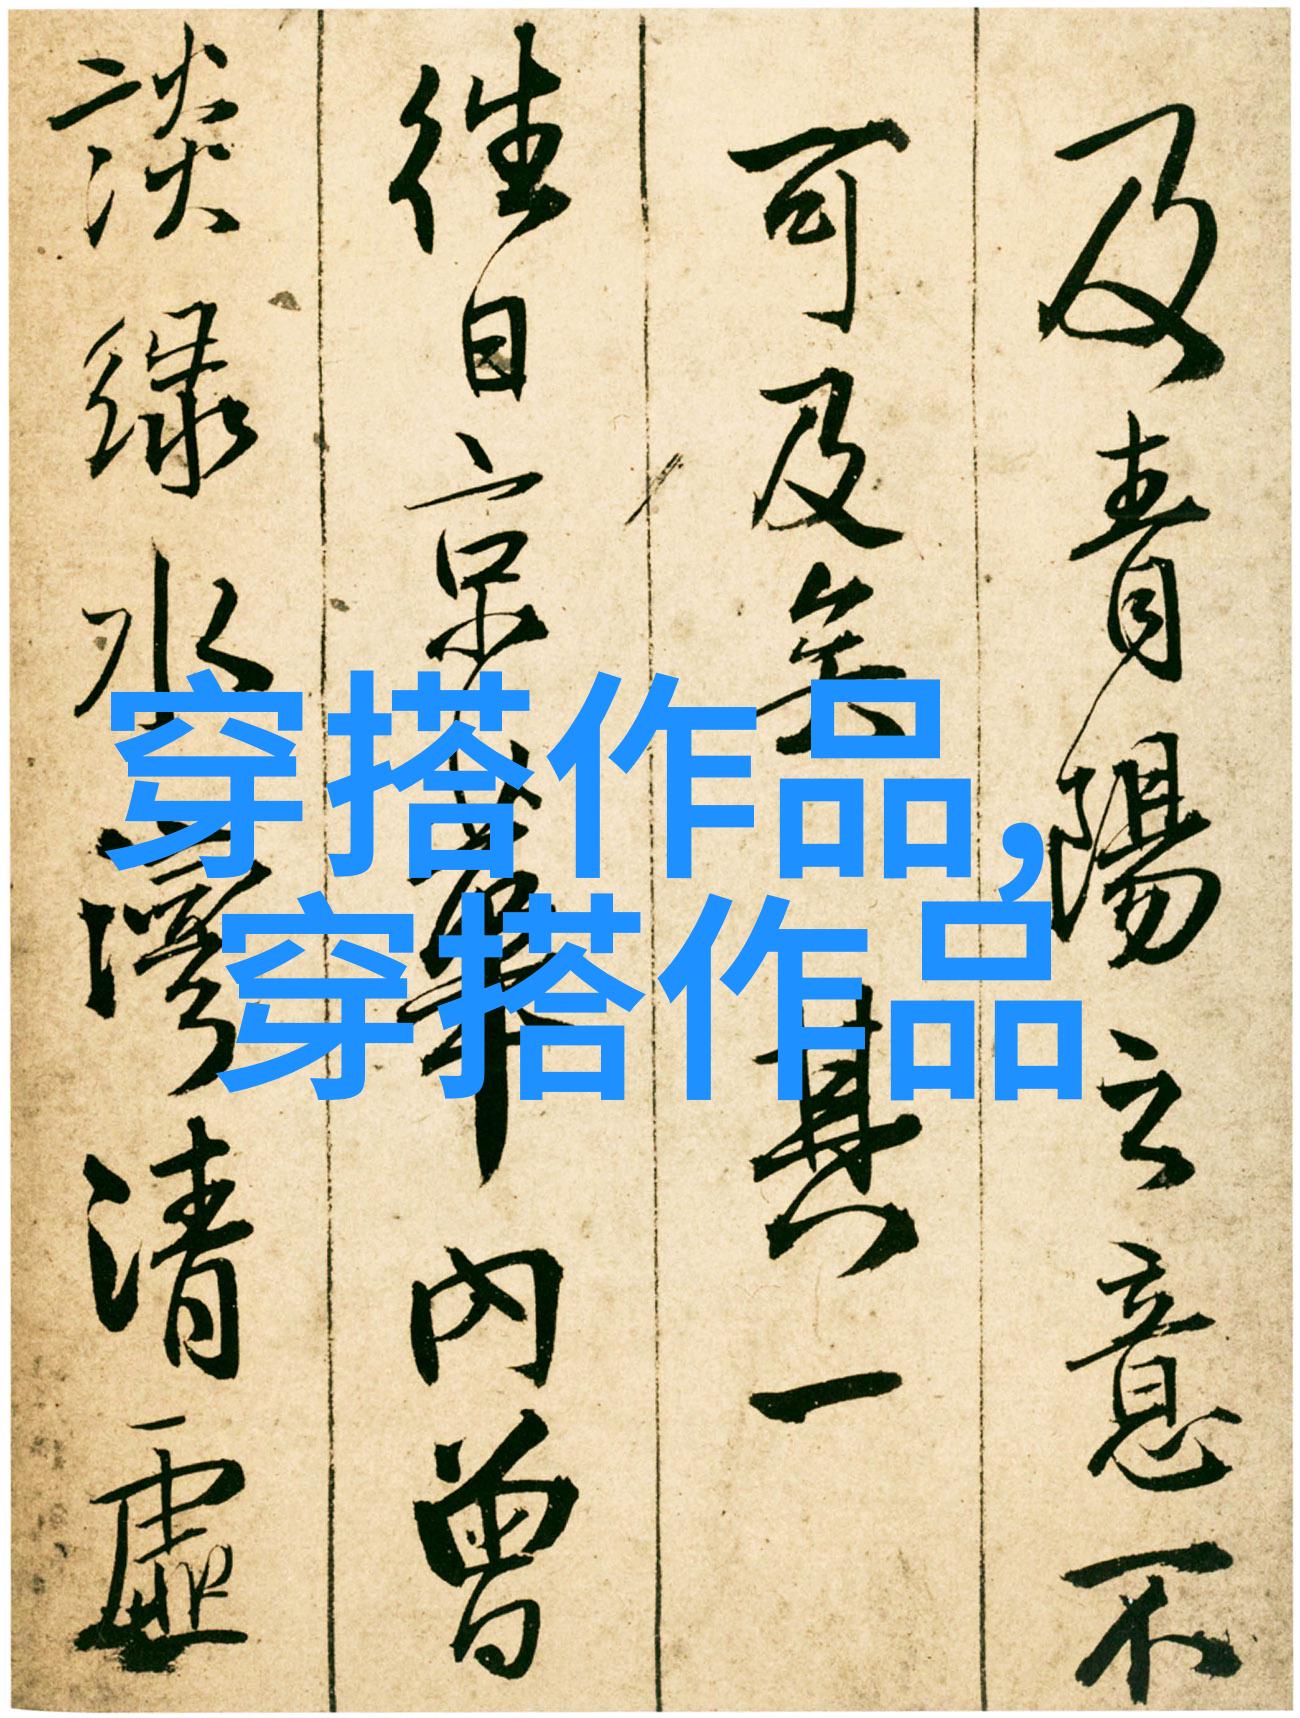 及青陽之意不
可及矣 其一
往日京華內曾
談綠水灣清虛
穿搭作品,
穿搭作品